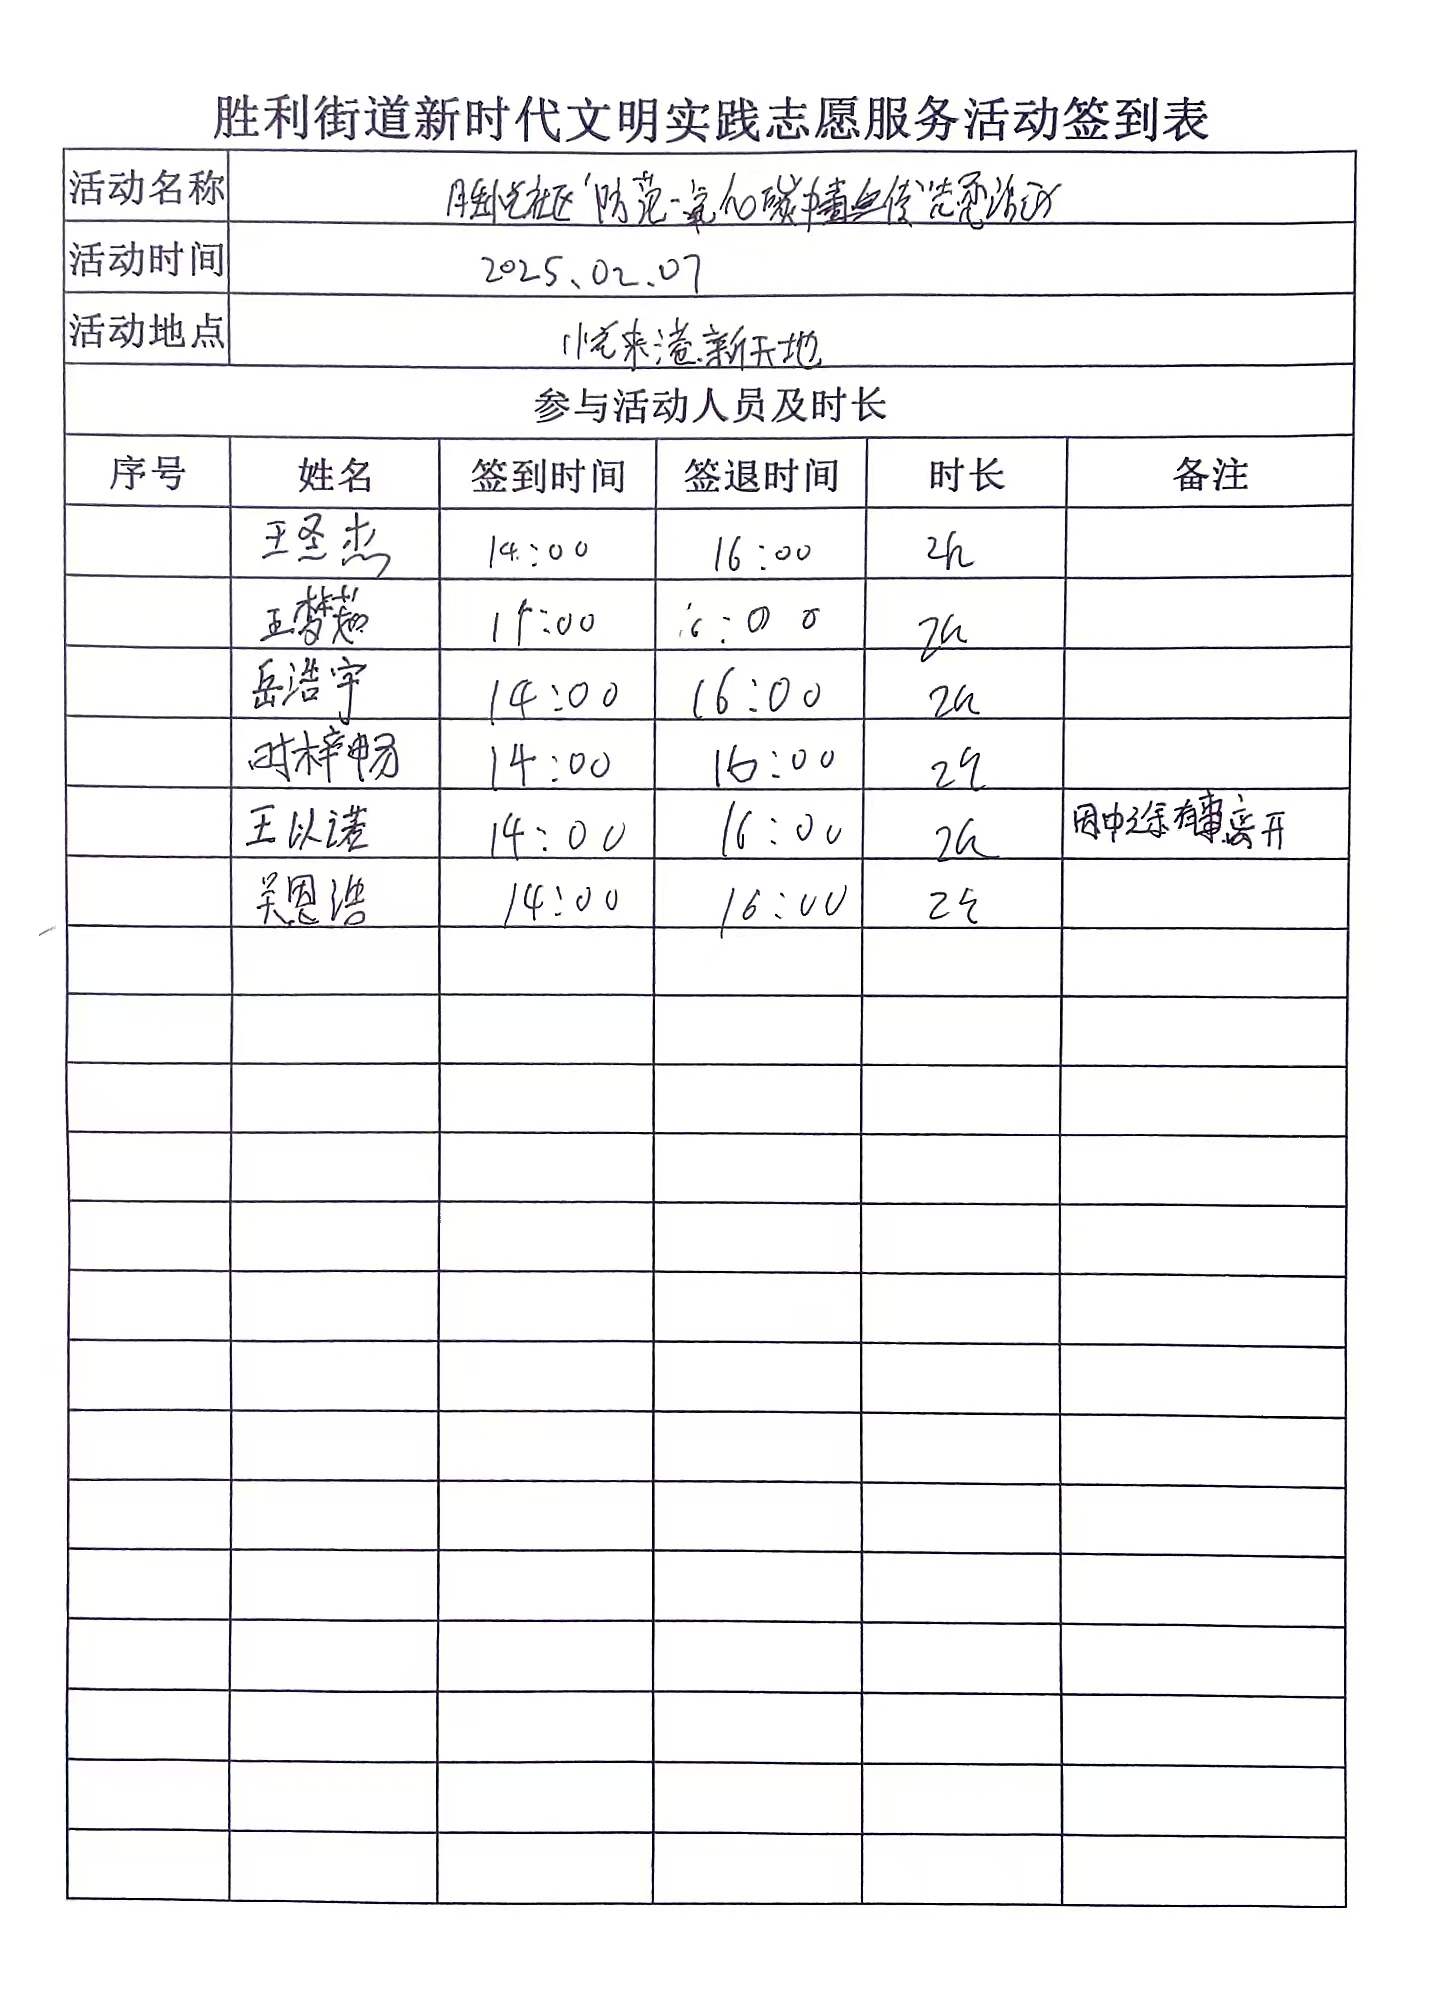 胜利街道新时代文明实践志愿服务活动签到表
活动名称 社区"防范一氧化碳中毒宣传"志愿活动
活动时间 2025.02.07
活动地点 悦来港新天地
参与活动人员及时长
序号 姓名 签到时间 签退时间 时长 备注
王圣杰 14:00 16:00 2h
王梦茹 14:00 16:00 2h
岳浩宇 14:00 16:00 2h
时梓畅 14:00 16:00 2h
王以诺 14:00 16:00 2h 因中途有事离开
吴恩浩 14:00 16:00 2h